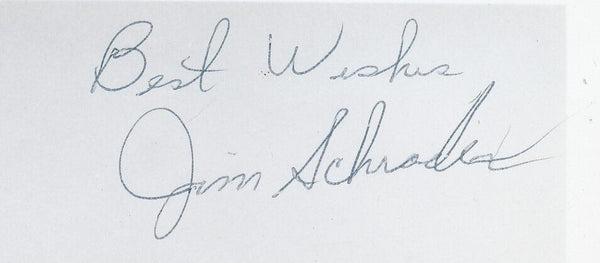 Best Wishes
Jim Schroder